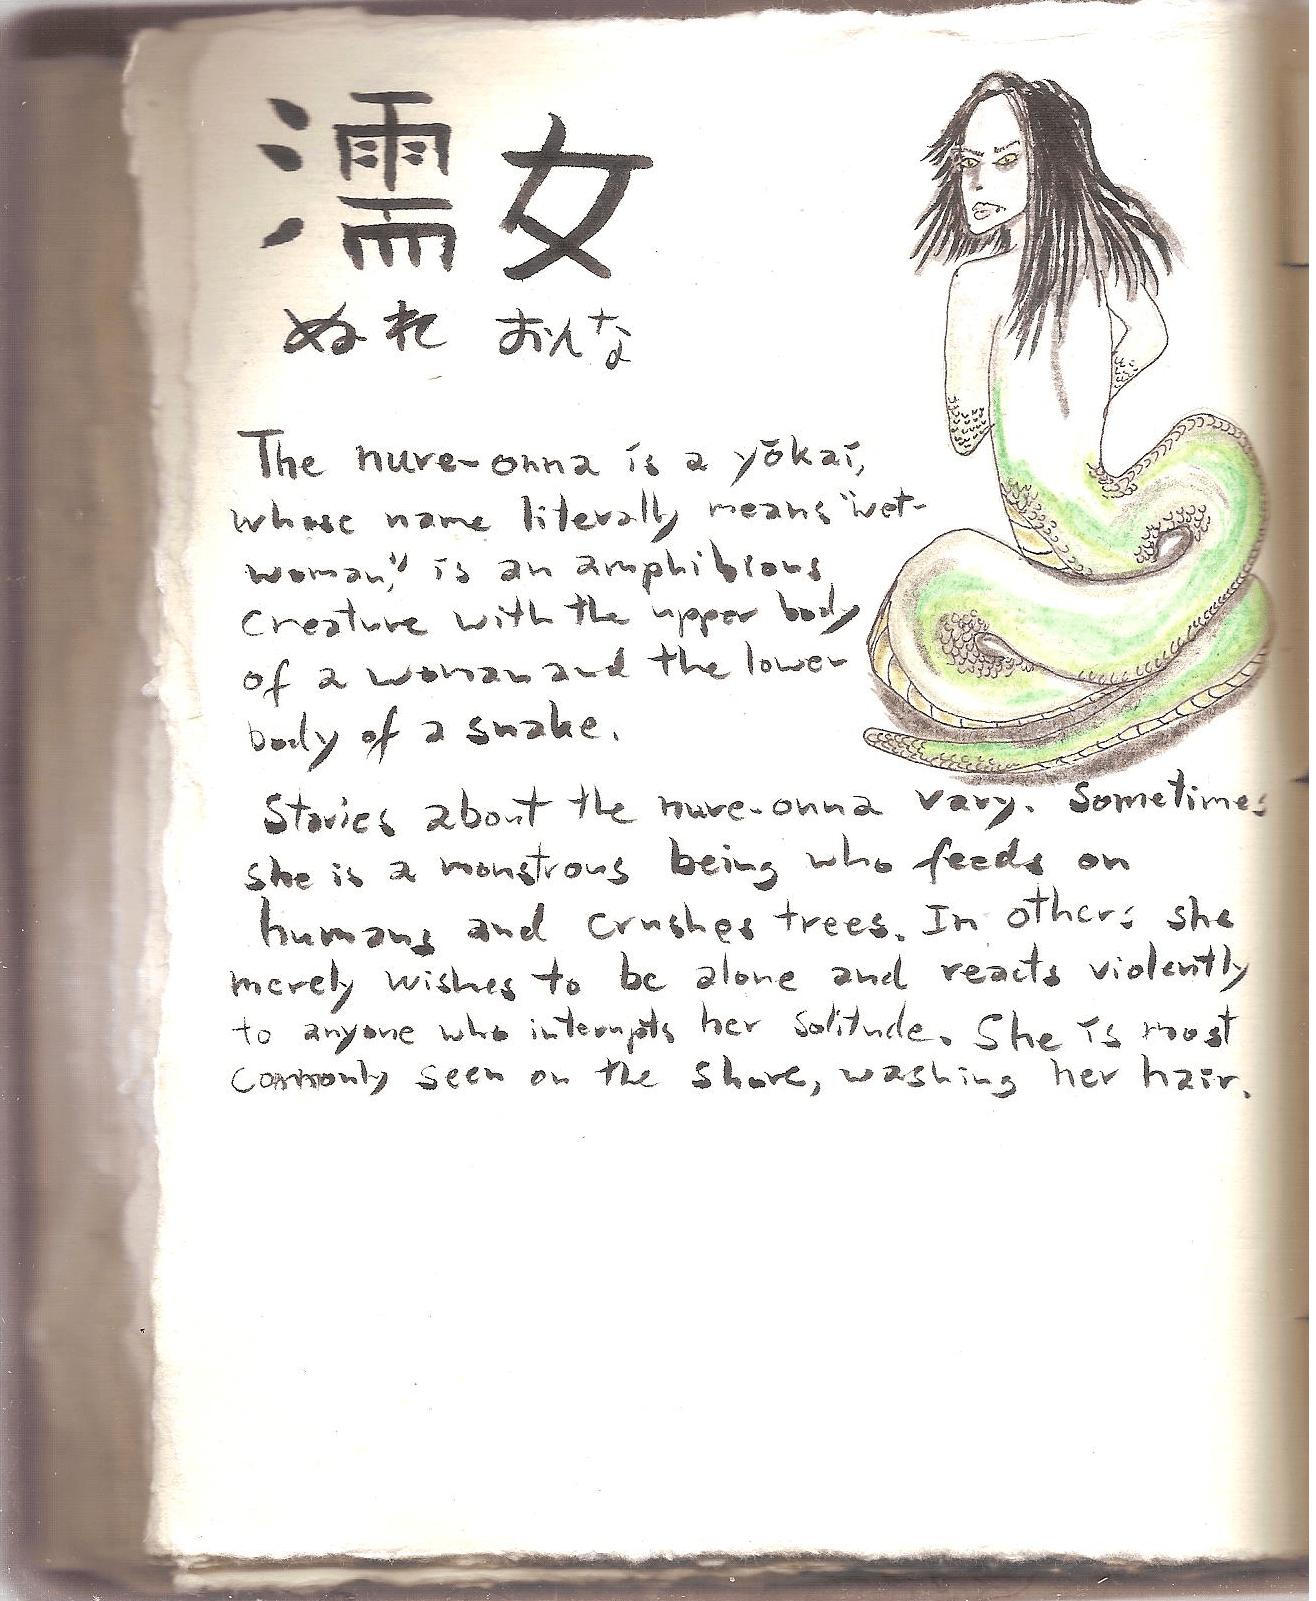 濡女
ぬれ おんな
The nure-onna is a yōkai,
whose name literally means "wet-
woman," is an amphibious
creature with the upper body
of a woman and the lower
body of a snake.
Stories about the nure-onna vary. Sometimes
she is a monstrous being who feeds on
humans and crushes trees. In others she
merely wishes to be alone and reacts violently
to anyone who interrupts her solitude. She is most
commonly seen on the shore, washing her hair.